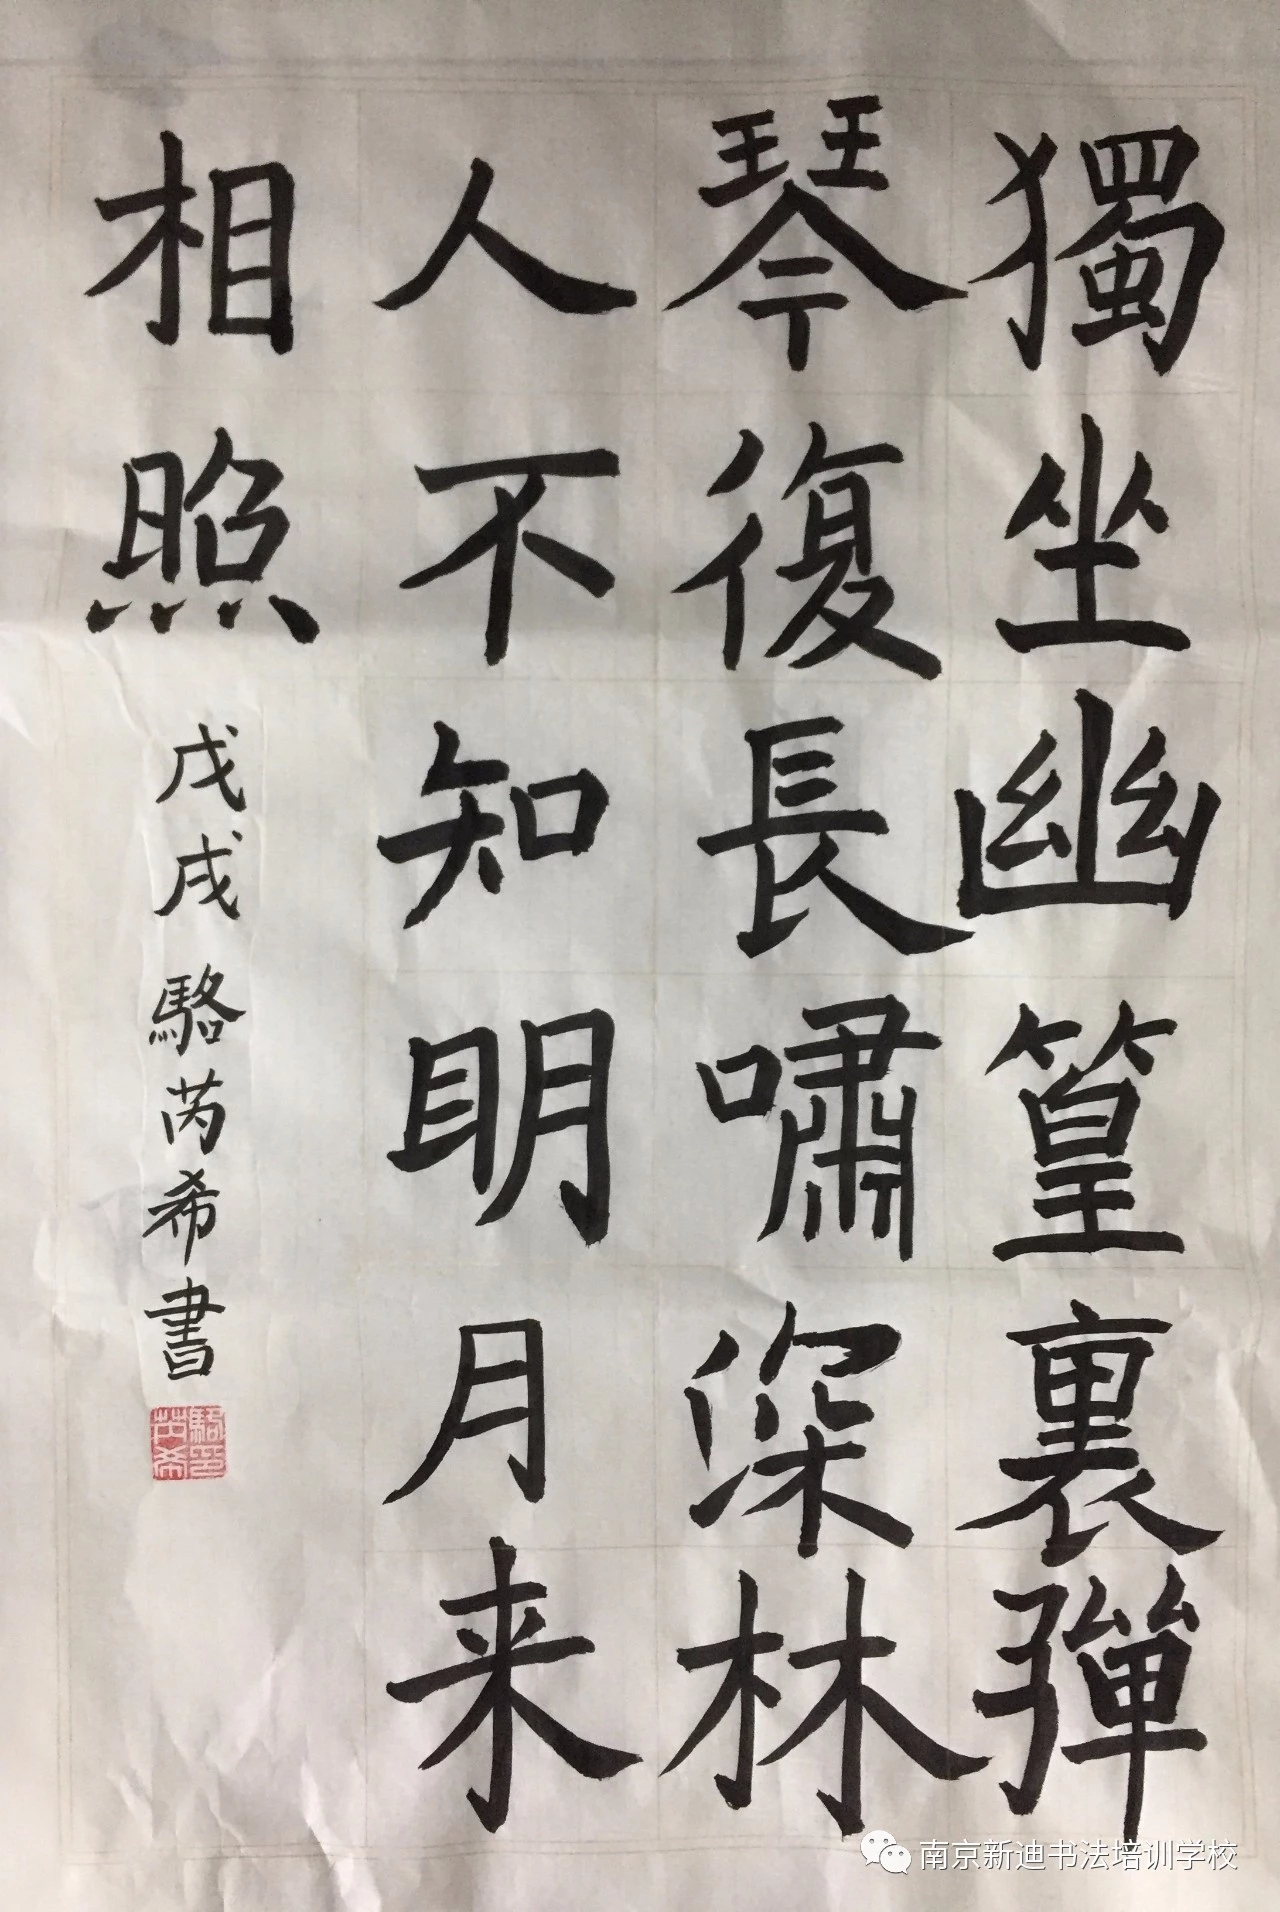 獨坐幽篁裏彈
琴復長嘯深林
人不知明月来
相照
戊戌駱芮希書
駱芮希印
南京新迪书法培训学校